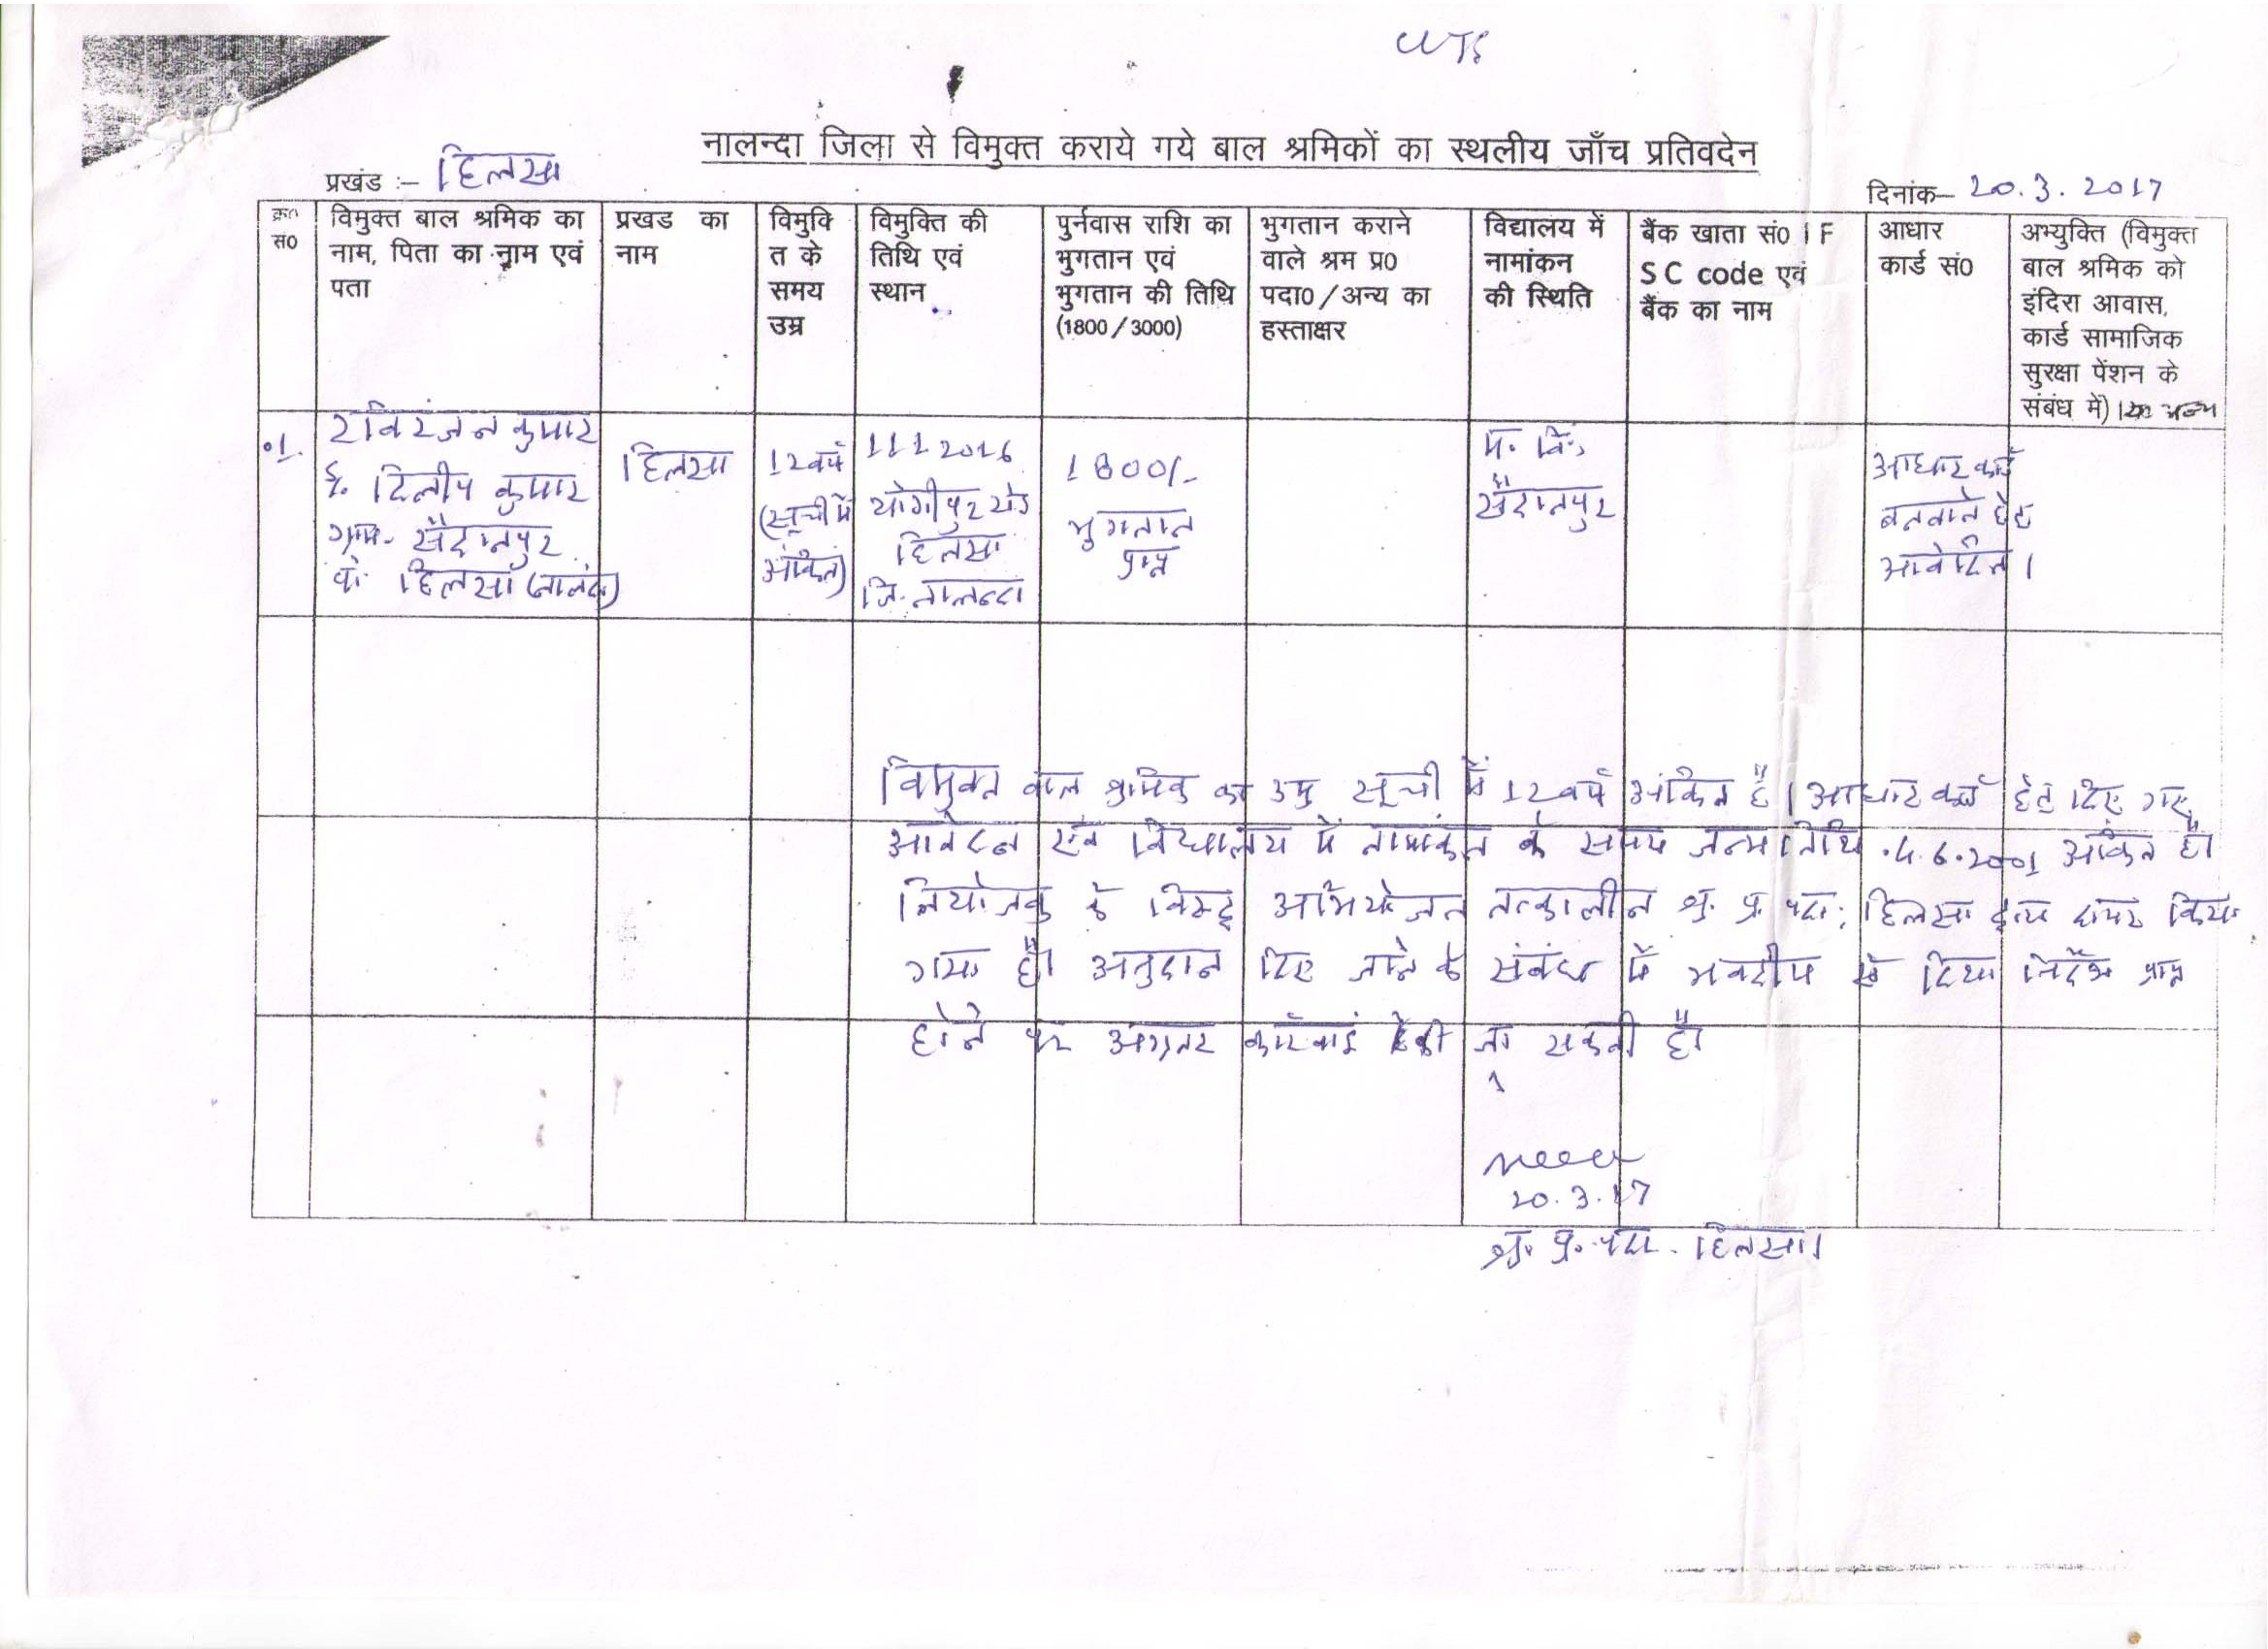 नालन्दा जिला से विमुक्त कराये गये बाल श्रमिकों का स्थलीय जाँच प्रतिवदेन
प्रखंड :– हिलसा
दिनांक– 20.3.2017
क्र० सं0
विमुक्त बाल श्रमिक का
नाम, पिता का नाम एवं
पता
प्रखड का
नाम
विमुक्ति
त के
समय
उम्र
विमुक्ति की
तिथि एवं
स्थान
पुर्नवास राशि का
भुगतान एवं
भुगतान की तिथि
(1800/3000)
भुगतान कराने
वाले श्रम प्र0
पदा0/अन्य का
हस्ताक्षर
विद्यालय में
नामांकन
की स्थिति
बैंक खाता सं0 I F
S C code एवं
बैंक का नाम
आधार
कार्ड सं0
अभ्युक्ति (विमुक्त
बाल श्रमिक को
इंदिरा आवास,
कार्ड सामाजिक
सुरक्षा पेंशन के
संबंध में)
01.
रविरंजन कुमार
पि. दिलीप कुमार
ग्राम- सैदानपुर
हिलसा (नालंदा)
हिलसा
12 वर्ष
(सूची में
अंकित)
11 1 2016
योगीपुर रोड
हिलसा
जि. नालन्दा
1800/-
भुगतान
प्राप्त
म. वि.,
सैदानपुर
आधार कार्ड
बनवाने हेतु
आवेदित।
विमुक्त बाल श्रमिक का उम्र सूची में 12 वर्ष अंकित है। आधार कार्ड हेतु दिए गए
आवेदन एवं विद्यालय में नामांकन के समय जन्म तिथि 4.6.2001 अंकित है।
नियोजक के विरुद्ध अभियोजन तत्कालीन श्र. प्र. पदा., हिलसा द्वारा दायर किया
गया है। अनुदान दिए जाने के संबंध में भवदीय से दिशा निर्देश प्राप्त
होने पर अग्रतर कार्रवाई की जा सकती है।
20.3.17
श्र. प्र. पदा. हिलसा।